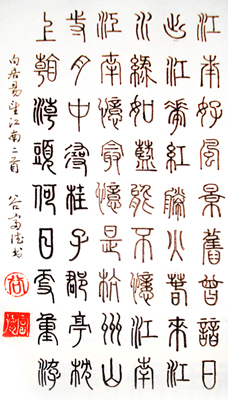 江南好風景舊曾諳日
出江花紅勝火春來江
水綠如藍能不憶江南
江南憶最憶是杭州山
寺月中尋桂子郡亭枕
上看潮頭何日更重游
白居易望江南二首 谷富书